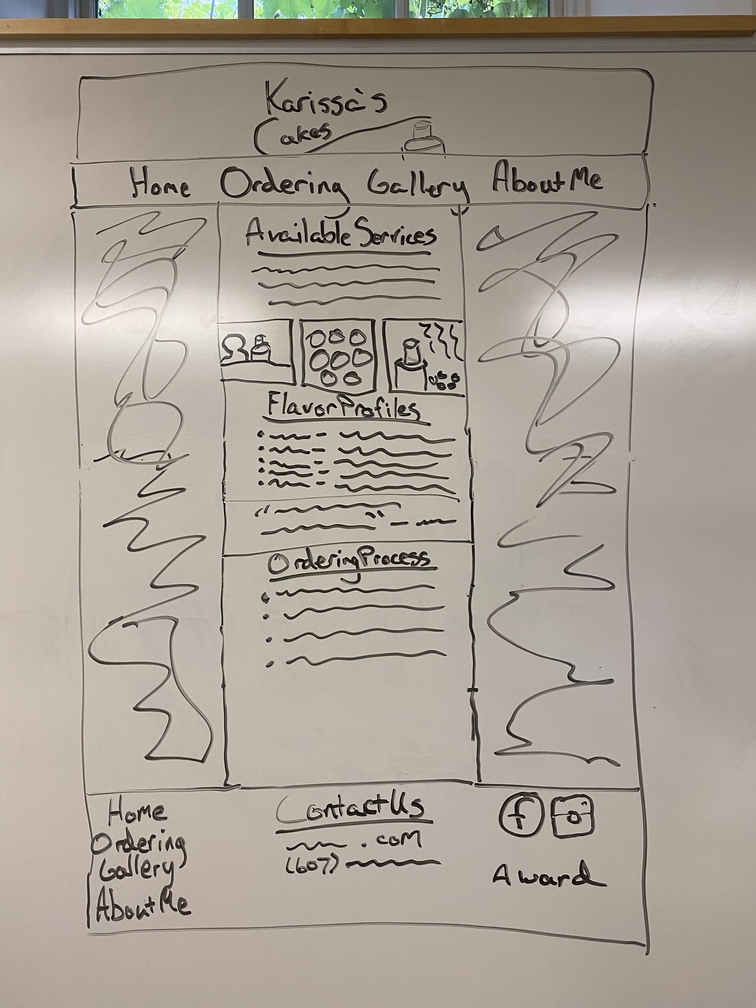 Karissa's
Cakes
Home Ordering Gallery About Me
Available Services
Flavor Profiles
Ordering Process
Home
Ordering
Gallery
About Me
Contact Us
.com
(607)
f
Award